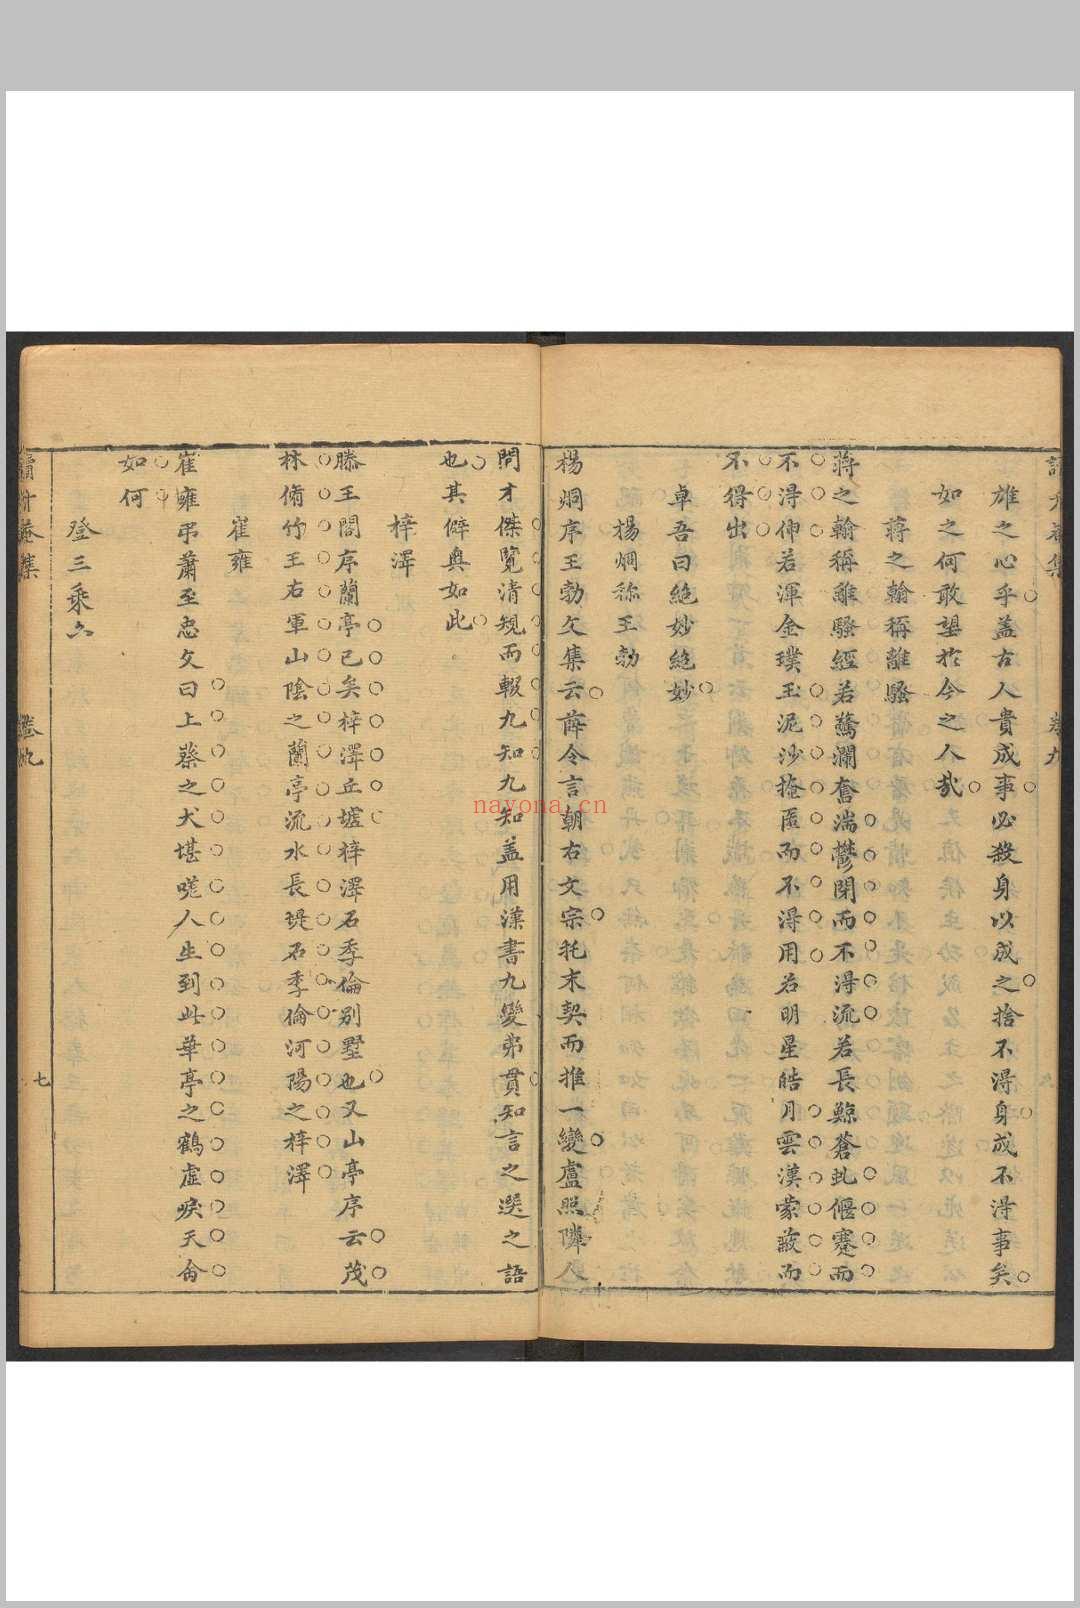 雄之心乎蓋古人貴成事必殺身以成之捨不得身成不得事矣
如之何敢望於今之人哉
蔣之翰稱離騷
蔣之翰稱離騷經若驚瀾奮湍鬱閉而不得流若長鯨蒼虬偃蹇而
不得伸若渾金璞玉泥沙掩匿而不得用若明星皓月雲漢蒙蔽而
不得出
卓吾曰絕妙絕妙
楊炯称王勃
楊炯序王勃文集云薛令言朝右文宗托末契而推一變盧照隣人
間才傑覽清規而輟九知九知盖用漢書九變弗貫知言之選之語
也其僻奥如此
梓澤
滕王閣序蘭亭已矣梓澤丘墟梓澤石季倫别墅也又山亭序云茂
林脩竹王右軍山陰之蘭亭流水長堤石季倫河陽之梓澤
崔雍
崔雍弔蕭至忠文曰上蔡之犬堪嗟人生到此華亭之鶴虛唳天命
如何
登三乘六
卷九
七
nayona.cn